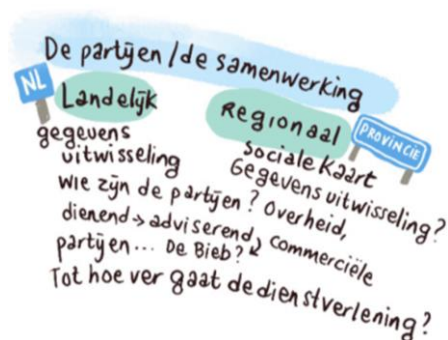 De partijen / de samenwerking
NL
Landelijk
gegevens
uitwisseling
Regionaal
PROVINCIE
Sociale Kaart
Gegevens uitwisseling?
Wie zijn de partijen? Overheid,
dienend → adviserend, commerciële
partijen... De Bieb?
Tot hoe ver gaat de dienstverlening?